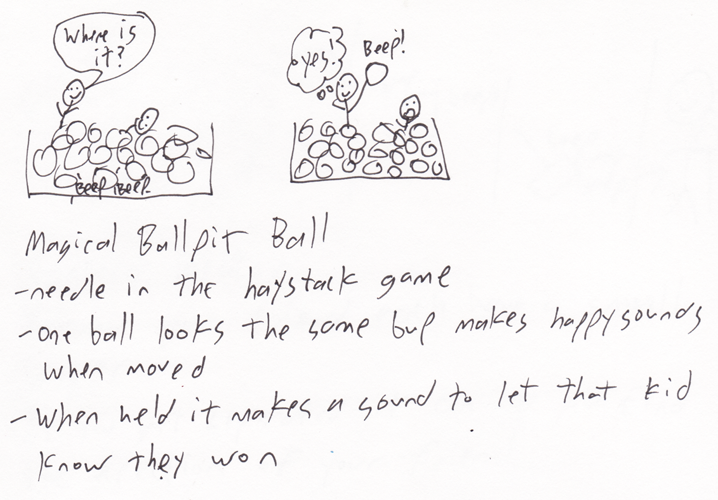 Where is
it?
Beep Beep
Yes!
Beep!
Magical Ballpit Ball
-needle in the haystack game
-one ball looks the same but makes happy sounds
when moved
-When held it makes a sound to let that kid
know they won